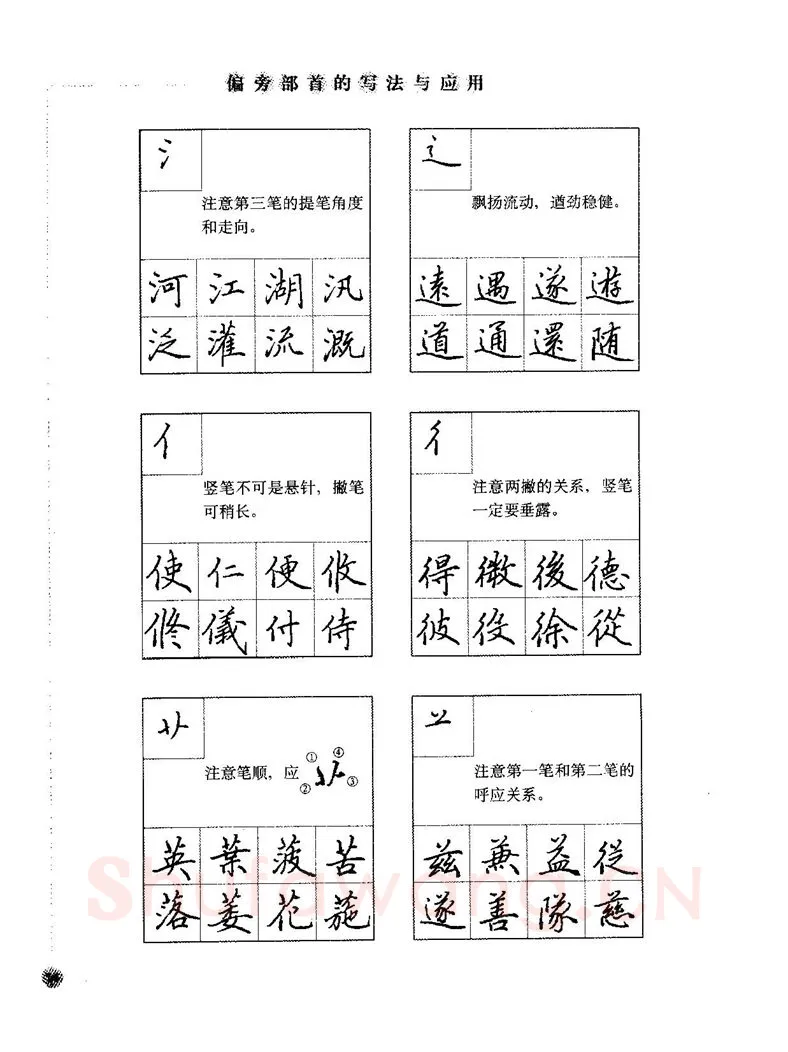 偏旁部首的写法与应用
氵
注意第三笔的提笔角度
和走向。
河江湖汎
泛灌流溉
辶
飘扬流动，遒劲稳健。
遠遇遂遊
道通還随
亻
竖笔不可是悬针，撇笔
可稍长。
使仁便攸
修儀付侍
彳
注意两撇的关系，竖笔
一定要垂露。
得微後德
彼役徐從
艹
注意笔顺，应
①④
②③
英葉菠苦
落萎花葹
䒑
注意第一笔和第二笔的
呼应关系。
兹兼益從
遂善隊慈
Shufawang.CN